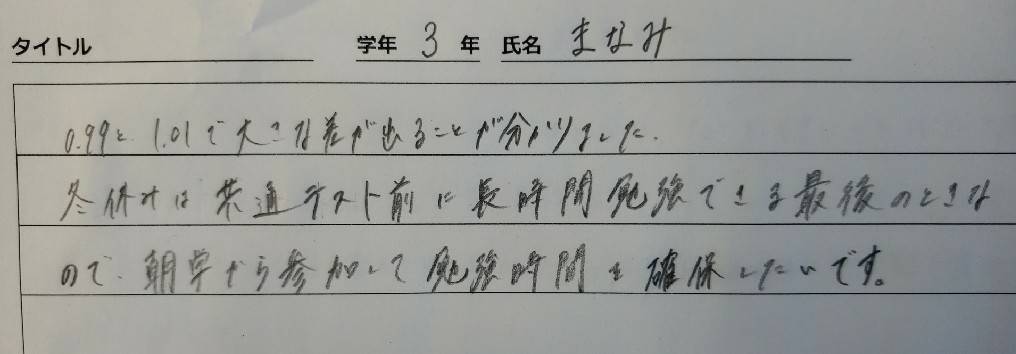 タイトル 学年 3 年 氏名 まなみ
0.99と1.01で大きな差が出ることが分かりました.
冬休みは共通テスト前に長時間勉強できる最後のときな
ので、朝早から参加して勉強時間を確保したいです。